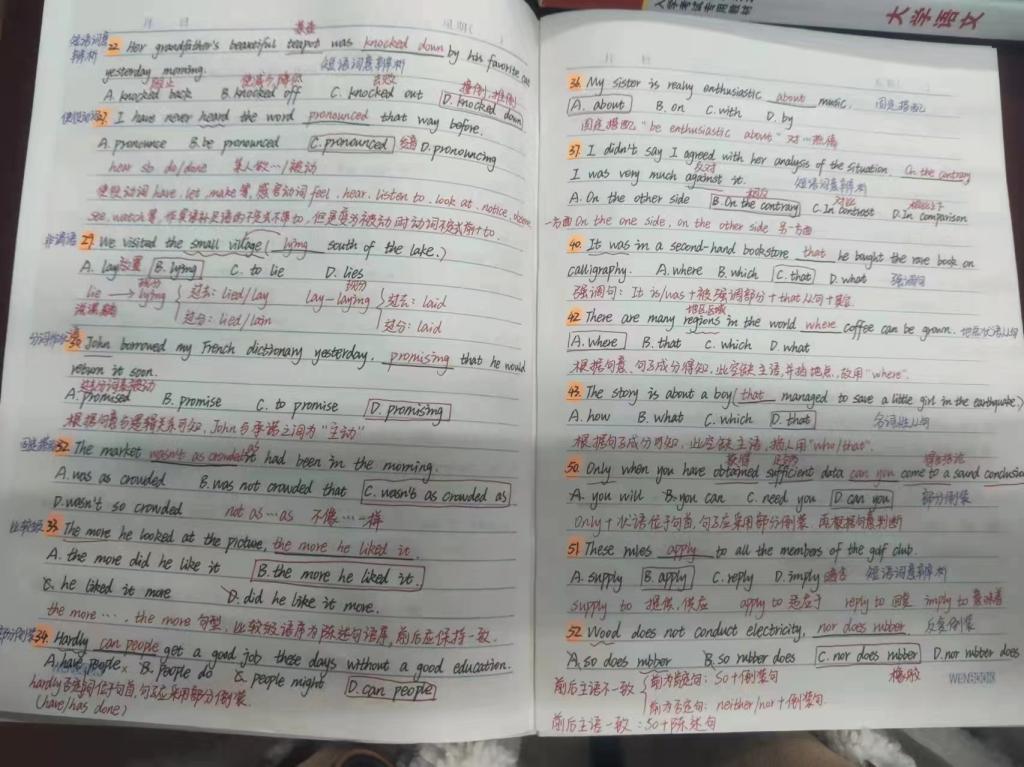 入学考试专用教材
大学语文
月 日 星期( )
茶壶
短语词意辨析 22. Her grandfather's beautiful teapot was knocked down by his favorite cat
yesterday morning. 短语词意辨析
阻止 使减少,降低 击败 撞倒,推倒
A. knocked back B. knocked off C. knocked out D. knocked down
使役动词 I have never heard the word pronounced that way before.
A. pronounce B. be pronounced C. pronounced D. pronouncing
hear sb do/done 某人做…/被动
使役动词 have, let, make等,感官动词feel, hear, listen to, look at, notice, observe
see, watch等,作宾语补足语的不定式不带to,但是变为被动时动词不定式前+to.
非谓语 29. We visited the small village (lying south of the lake.)
A. lay放置 B. lying C. to lie D. lies
现分 现分
lie → lying 过去: lied/lay lay—laying 过去: laid
说谎 躺 过分: lied/lain 过分: laid
30. John borrowed my French dictionary yesterday, promising that he would
return it soon.
过去分词表被动
A. promised B. promise C. to promise D. promising
根据句意与逻辑关系可知, John与承诺之间为“主动”
固定搭配 32. The market wasn't as crowded as it had been in the morning.
A. was as crowded B. was not crowded that C. wasn't as crowded as
D. wasn't so crowded not as…as 不像…一样
比较级 33. The more he looked at the picture, the more he liked it.
A. the more did he like it B. the more he liked it.
C. he liked it more D. did he like it more.
the more …, the more 句型, 比较级语序为陈述句语序,前后应保持一致.
部分倒装 34. Hardly can people get a good job these days without a good education.
A. have people B. people do C. people might D. can people
hardly否定词位于句首,句子应采用部分倒装.
(have/has done)
36. My sister is really enthusiastic about music. 固定搭配
A. about B. on C. with D. by
固定搭配 "be enthusiastic about" 对…热情
37. I didn't say I agreed with her analysis of the situation. On the contrary
反对
I was very much against it. 短语词意辨析
相反 对比 相比之下
A. On the other side B. On the contrary C. In contrast D. In comparison
一方面 On the one side, on the other side 另一方面
40. It was in a second-hand bookstore that he bought the rare book on
calligraphy. A. where B. which C. that D. what 强调句
强调句: It is/was + 被强调部分 + that从句+其它
地区,区域
42. There are many regions in the world where coffee can be grown. 地点状语从句
A. where B. that C. which D. what
根据句意、句子成分得知,此空缺主语,并指地点,故用"where".
43. The story is about a boy (that managed to save a little girl in the earthquake.)
A. how B. what C. which D. that 名词性从句
根据句子成分可知,此空缺主语,指人用"who/that".
获得 足够的 得出结论
50. Only when you have obtained sufficient data can you come to a sound conclusion
A. you will B. you can C. need you D. can you 部分倒装
Only+状语位于句首,句子应采用部分倒装 再根据句意判断
51. These rules apply to all the members of the golf club.
A. supply B. apply C. reply D. imply 暗含 短语词意辨析
supply to 提供,供应 apply to 适应于 reply to 回复 imply to 意味着
52. Wood does not conduct electricity, nor does rubber. 倒装
A. so does rubber B. so rubber does C. nor does rubber D. nor rubber does
橡胶
前后主语不一致 前为肯定句: so+倒装句
前为否定句: neither/nor+倒装句.
前后主语一致: so+陈述句